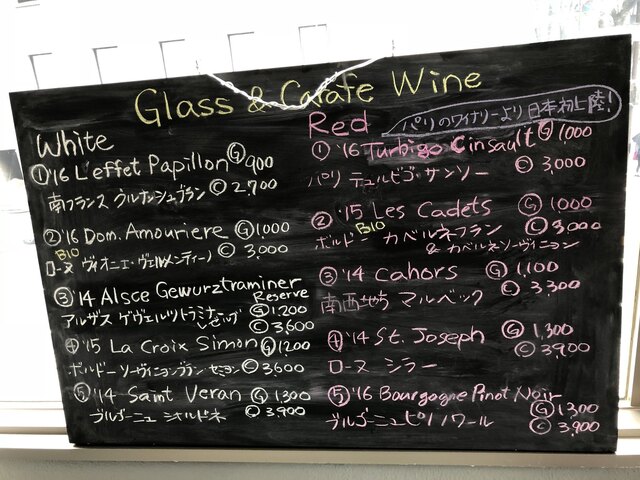 Glass & Carafe Wine
White
① '16 L'effet Papillon Ⓖ 900
南フランス グルナッシュブラン Ⓒ 2,700
② '16 Dom. Amouriere Ⓖ 1,000
BIO Ⓒ 3,000
ローヌ ヴィオニエ・ヴェルメンティーノ
③ '14 Alsce Gewurztraminer
Reserve
アルザス ゲヴェルツトラミナー Ⓖ 1,200
レゼルヴ Ⓒ 3,600
④ '15 La Croix Simon Ⓖ 1200
ボルドー ソーヴィニヨンブラン セミヨン Ⓒ 3600
⑤ '14 Saint Veran Ⓖ 1300
ブルゴーニュ シャルドネ Ⓒ 3,900
Red
パリのワイナリーより日本初上陸!
① '16 Turbigo Cinsault Ⓖ 1,000
パリ テュルビゴ・サンソー Ⓒ 3,000
② '15 Les Cadets Ⓖ 1000
BIO Ⓒ 3,000
ボルドー カベルネフラン
& カベルネソーヴィニヨン
③ '14 Cahors Ⓖ 1,100
南西地方 マルベック Ⓒ 3,300
④ '14 St. Joseph Ⓖ 1,300
ローヌ シラー Ⓒ 3,900
⑤ '16 Bourgogne Pinot Noir
Ⓖ 1300
ブルゴーニュピノノワール Ⓒ 3,900